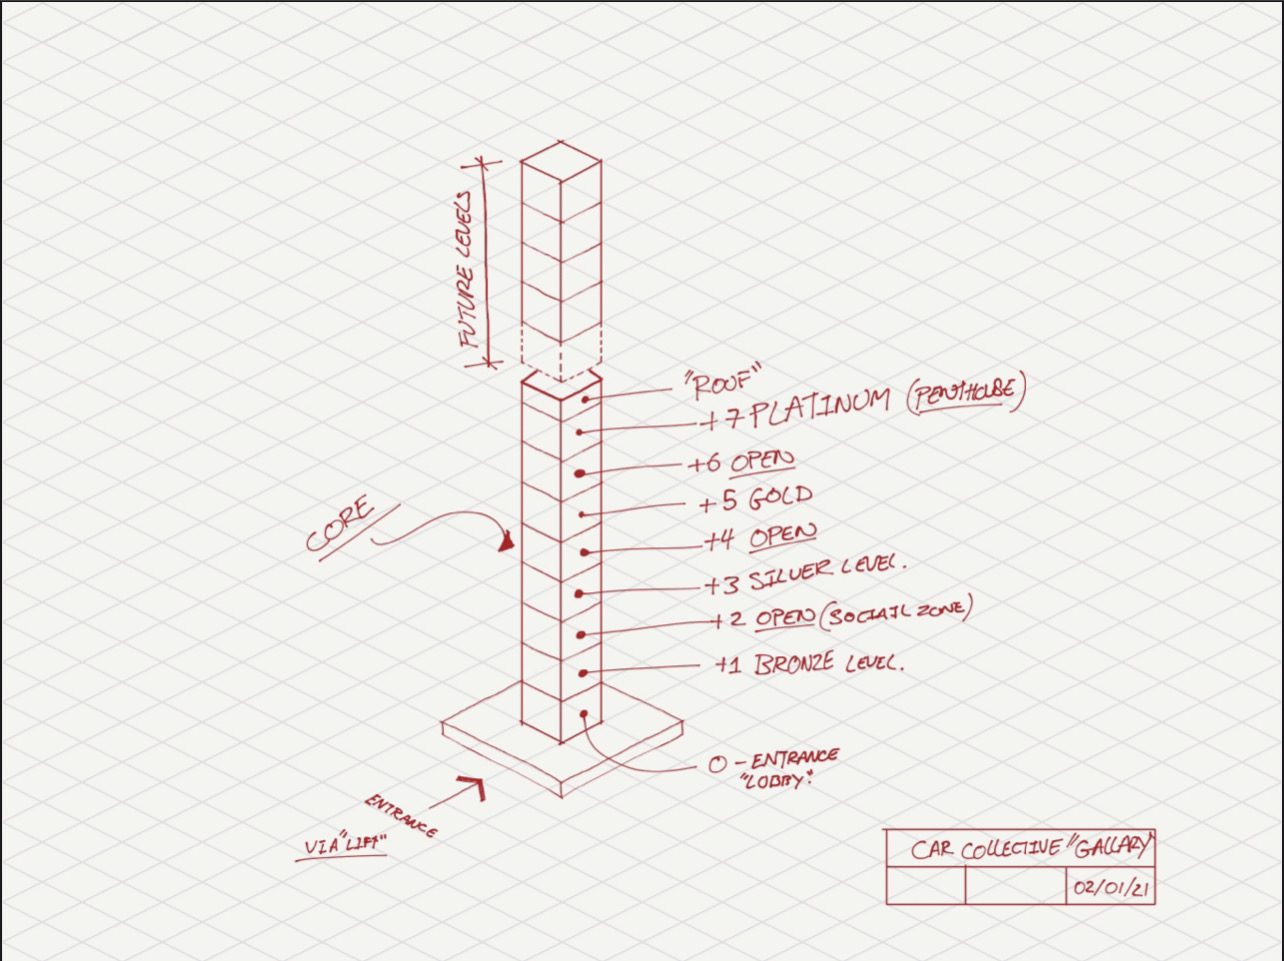 FUTURE LEVELS
"ROOF"
+7 PLATINUM (PENTHOUSE)
+6 OPEN
+5 GOLD
+4 OPEN
+3 SILVER LEVEL.
+2 OPEN (SOCIAIL ZONE)
+1 BRONZE LEVEL.
CORE
0 - ENTRANCE
"LOBBY."
ENTRANCE
VIA "LIFT"
CAR COLLECTIVE "GALLARY"
02/01/21